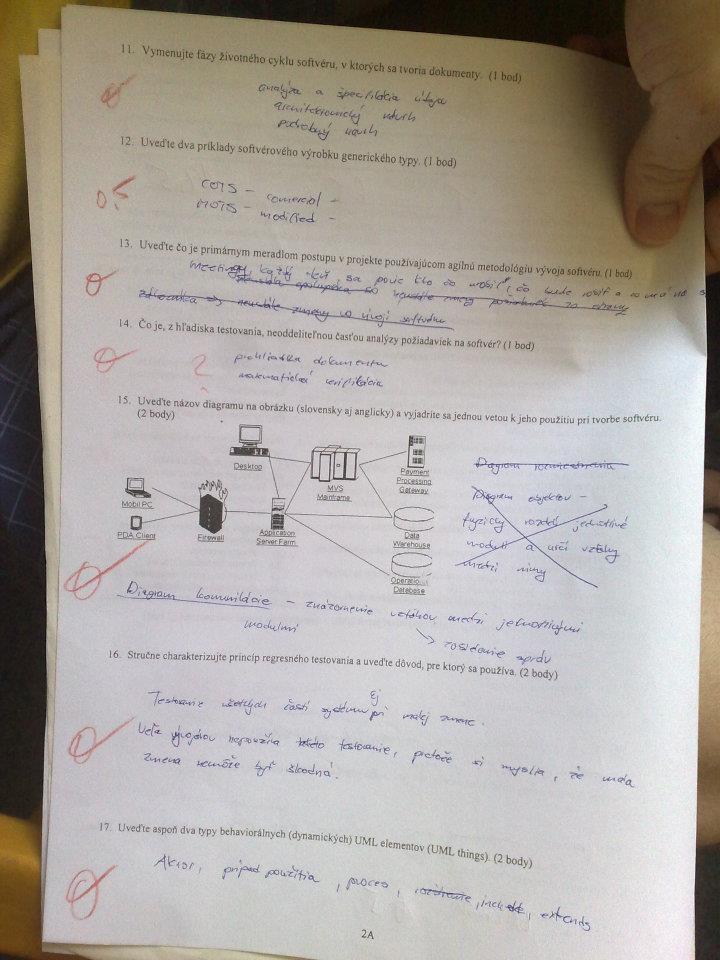 11. Vymenujte fázy životného cyklu softvéru, v ktorých sa tvoria dokumenty. (1 bod)
analýza a špecifikácia údajov
architektonický návrh
podrobný návrh
12. Uveďte dva príklady softvérového výrobku generického typy. (1 bod)
COTS - comercial -
MOTS - modified -
0.5
13. Uveďte čo je primárnym meradlom postupu v projekte používajúcom agilnú metodológiu vývoja softvéru. (1 bod)
meetingy, každý deň sa povie kto čo urobil, čo bude robiť a
neustále zmeny vo vývoji softvéru
14. Čo je, z hľadiska testovania, neoddeliteľnou časťou analýzy požiadaviek na softvér? (1 bod)
prehliadka dokumentu
matematická verifikácia
?
15. Uveďte názov diagramu na obrázku (slovensky aj anglicky) a vyjadrite sa jednou vetou k jeho použitiu pri tvorbe softvéru.
(2 body)
Desktop
MVS
Mainframe
Payment
Processing
Gateway
Mobil PC
PDA Client
Firewall
Application
Server Farm
Data
Warehouse
Operational
Database
Diagram rozmiestnenia
Diagram objektov -
fyzický rozdiel jednotlivé
moduly a určí vzťahy
medzi nimi
Diagram komunikácie - znázornenie vzťahov medzi jednotlivými
modulmi
→ zosielanie správ
16. Stručne charakterizujte princíp regresného testovania a uveďte dôvod, pre ktorý sa používa. (2 body)
Testovanie všetkých častí systému aj pri malej zmene.
Veľa vývojárov nepoužíva takéto testovanie, pretože si myslia, že malá
zmena nemôže byť škodná.
17. Uveďte aspoň dva typy behaviorálnych (dynamických) UML elementov (UML things). (2 body)
Aktor, prípad použitia, proces, include, extends
2A